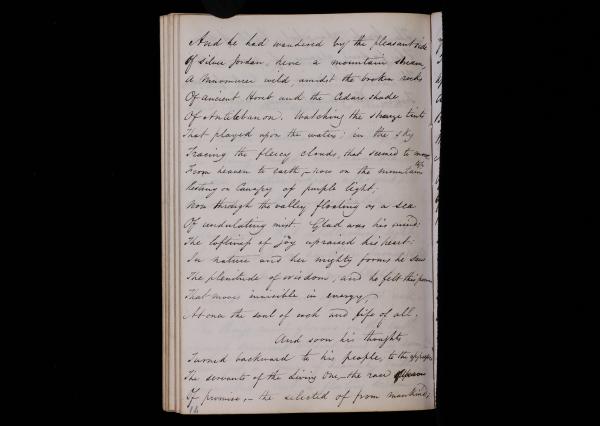 And he had wandered by the pleasant side
Of silver Jordan, here a mountain stream,
A Murmurer wild, amidst the broken rocks
Of ancient Horeb and the Cedars shade
Of Antilebanon. Watching the strange tints
That played upon the water; in the sky
Tracing the fleecy clouds, that seemed to move
From heaven to earth, – now on the mountain
Resting on Canopy of purple light;
Now through the valley floating as a sea
Of undulating mist. Glad was his mind:
The loftiness of joy upraised his heart:
In nature and her mighty forms he saw
The plenitude of wisdom, and he felt this power
That moves invisible in energy,
At once the soul of each and life of all.
And soon his thoughts
Turned backward to his people, to the
The servants of the living One, – the race
Of promise, – the selected of from mankind;
14